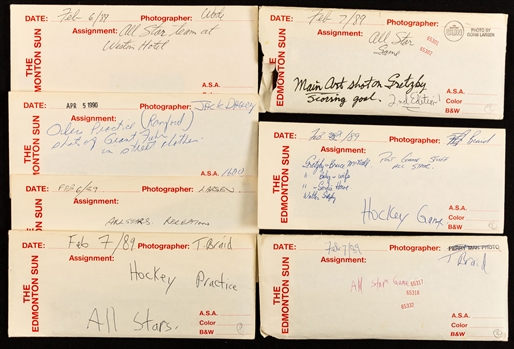 THE EDMONTON SUN
DATE: Feb 6/89 Photographer:
Assignment: All Star team at
Westin Hotel
A.S.A.
THE EDMONTON SUN
DATE: APR 5 1990 Photographer:
Assignment:
Oilers Practice (Ranford)
shot of Grant Fuhr
in street clothes.
A.S.A.
THE EDMONTON SUN
DATE: Feb 6/89 Photographer: LARSEN
Assignment:
ALLSTARS. RECEPTION
A.S.A.
THE EDMONTON SUN
DATE: Feb 7/89 Photographer: T. Braid
Assignment:
Hockey Practice
All Stars.
A.S.A.
Color
B&W
THE EDMONTON SUN
DATE: Feb 7/89 Photographer:
SUN
PHOTO BY
GORM LARSEN
Assignment: All Star
Game
Main Art shot on Gretzky
Scoring goal. 2nd edition
A.S.A.
Color
B&W
THE EDMONTON SUN
DATE: Photographer:
Assignment: Post Game Stuff
ALL STAR.
Gretzky - Bruce McNall
" baby - wife
" - Gordie Howe
Walter
Hockey Game
A.S.A.
Color
B&W
THE EDMONTON SUN
DATE: Feb 7/89 Photographer:
T Braid
Assignment:
All Stars Game 65317
65318
65332
A.S.A.
Color
B&W